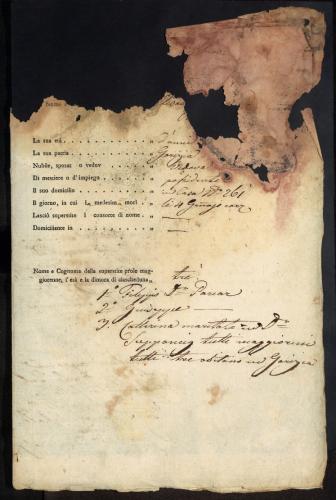 Nome
La sua età . . . . . . . . . . d'anni
La sua patria . . . . . . . . . . Gorizia
Nubile, sposat o vedov . . . . . . . . Vedova
Di mestiere o d'impiego . . . . . . . . possidente
Il suo domicilio . . . . . . . . in Casa N° 261
Il giorno, in cui La medesima morì . . li 4
Lasciò superstite 1 consorte di nome . . —
Domiciliante in . . . . . . . . —
Nome e Cognome della superstite prole mag-
giorenne, l'età e la dimora di ciascheduna
tre
1° Filippo
2° Giuseppe —
3. Catterina maritata
tutti maggiorenni
tutti tre abitano in Gorizia